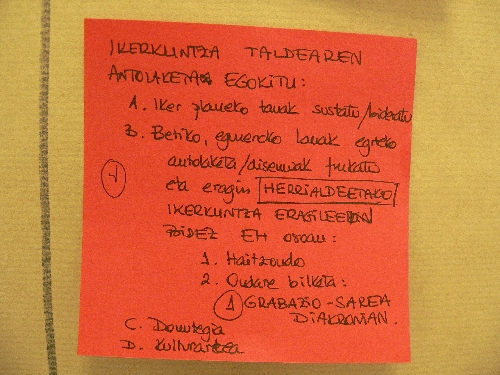 IKERKUNTZA TALDEAREN
ANTOLAKETA EGOKITU:
A. Iker planeko lanak sustatu/bideratu
B. Betiko, eguneroko lanak egiteko
antolaketa/diseinuak finkatu
4 eta eragin HERRIALDEETAKO
IKERKUNTZA ERAGILEEKIN
BIDEZ EH osoan:
1. Haitzondo
2. Ondare bilketa:
1 GRABAZIO-SAREA
DIAKRONIAN.
C. Donutegia
D. Kulturartea